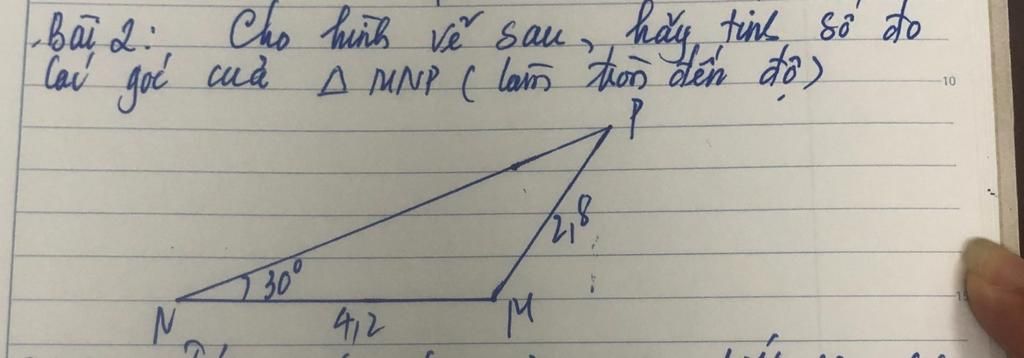 Bài 2: Cho hình vẽ sau, hãy tính số đo
các góc của Δ MNP (làm tròn đến độ)
10
P
2,8
30°
15
N
4,2
M